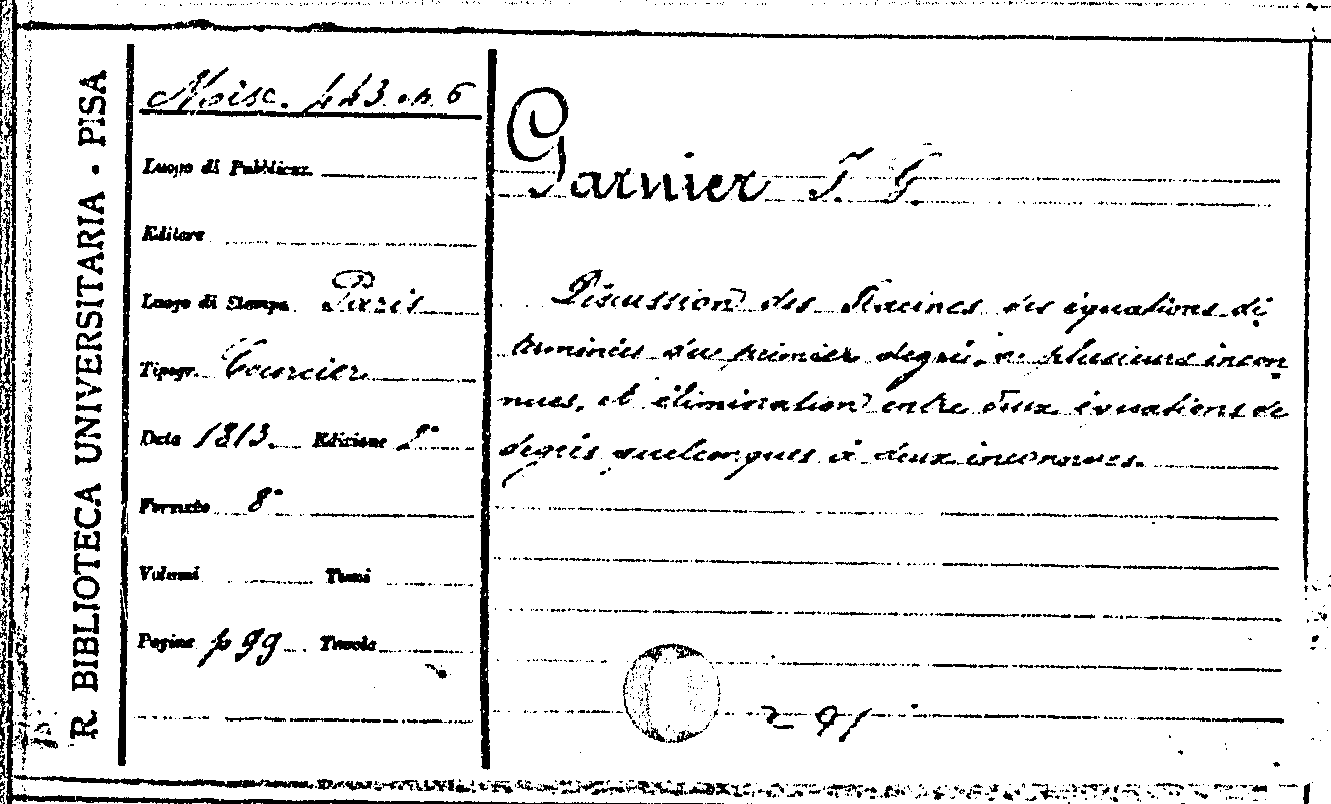 R. BIBLIOTECA UNIVERSITARIA - PISA
Misc. 443. n. 6
Luogo di Pubblicaz.
Editore
Luogo di Stampa Paris
Tipogr. Courcier
Data 1813. Edizione 2ª
Formato 8°
Volumi Tomi
Pagine p 99 Tavole
Garnier J. G.
Discussion des Racines des équations dé
terminées du premier degré, à plusieurs incon
nues, et élimination entre deux équations de
degrés quelconques à deux inconnues.
291